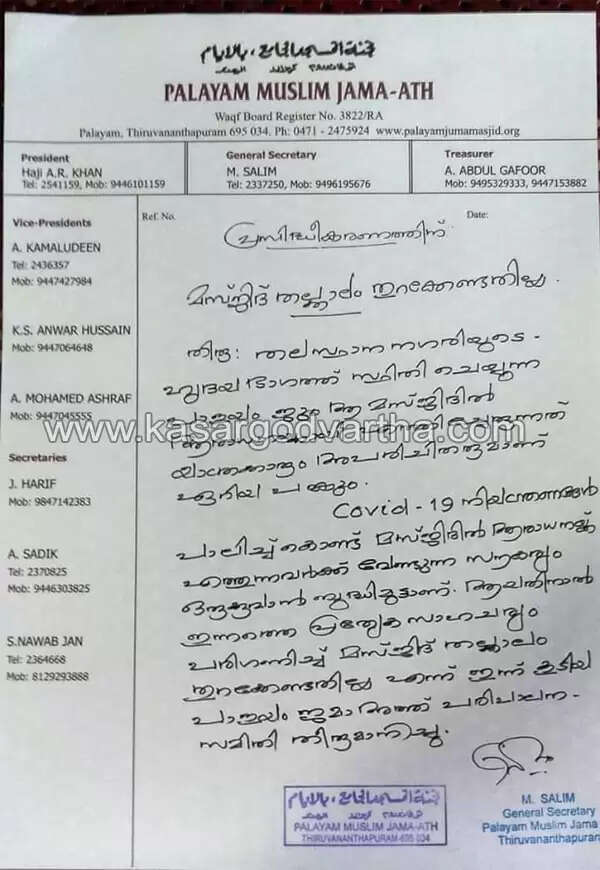 PALAYAM MUSLIM JAMA-ATH
Waqf Board Register No. 3822/RA
Palayam, Thiruvananthapuram 695 034. Ph: 0471 - 2475924 www.palayamjumamasjid.org
President
Haji A.R. KHAN
Tel: 2541159, Mob: 9446101159
General Secretary
M. SALIM
Tel: 2337250, Mob: 9496195676
Treasurer
A. ABDUL GAFOOR
Mob: 9495329333, 9447153882
Vice-Presidents
A. KAMALUDEEN
Tel: 2436357
Mob: 9447427984
K.S. ANWAR HUSSAIN
Mob: 9447064648
A. MOHAMED ASHRAF
Mob: 9447045555
Secretaries
J. HARIF
Mob: 9847142383
A. SADIK
Tel: 2370825
Mob: 9446303825
S.NAWAB JAN
Tel: 2364668
Mob: 8129293888
Ref. No.
Date:
പ്രസിദ്ധീകരണത്തിന്
മസ്ജിദ് തല്ക്കാലം തുറക്കേണ്ടതില്ല.
തിരു: തലസ്ഥാന നഗരിയുടെ -
ഹൃദയ ഭാഗത്ത് സ്ഥിതി ചെയ്യുന്ന
പാളയം ജുമാ മസ്ജിദിൽ
എത്തി ചേരുന്നത്
യാത്രക്കാരും അപരിചിതരുമാണ്
ഏറിയ പങ്കും.
Covid - 19 നിയന്ത്രണങ്ങൾ
പാലിച്ച് കൊണ്ട് മസ്ജിദിൽ ആരാധനക്ക്
എത്തുന്നവർക്ക് വേണ്ടുന്ന സൗകര്യം
ഒരുക്കുവാൻ ബുദ്ധിമുട്ടാണ്. ആയതിനാൽ
ഇന്നത്തെ പ്രത്യേക സാഹചര്യം
പരിഗണിച്ച് മസ്ജിദ് തല്ക്കാലം
തുറക്കേണ്ടതില്ല എന്ന് ഇന്ന് കൂടിയ
പാളയം ജമാഅത്ത് പരിപാലന -
സമിതി തീരുമാനിച്ചു.
M. SALIM
General Secretary
Palayam Muslim Jama
Thiruvananthapuram
PALAYAM MUSLIM JAMA-ATH
THIRUVANANTHAPURAM-695 034
www.kasargodvartha.com